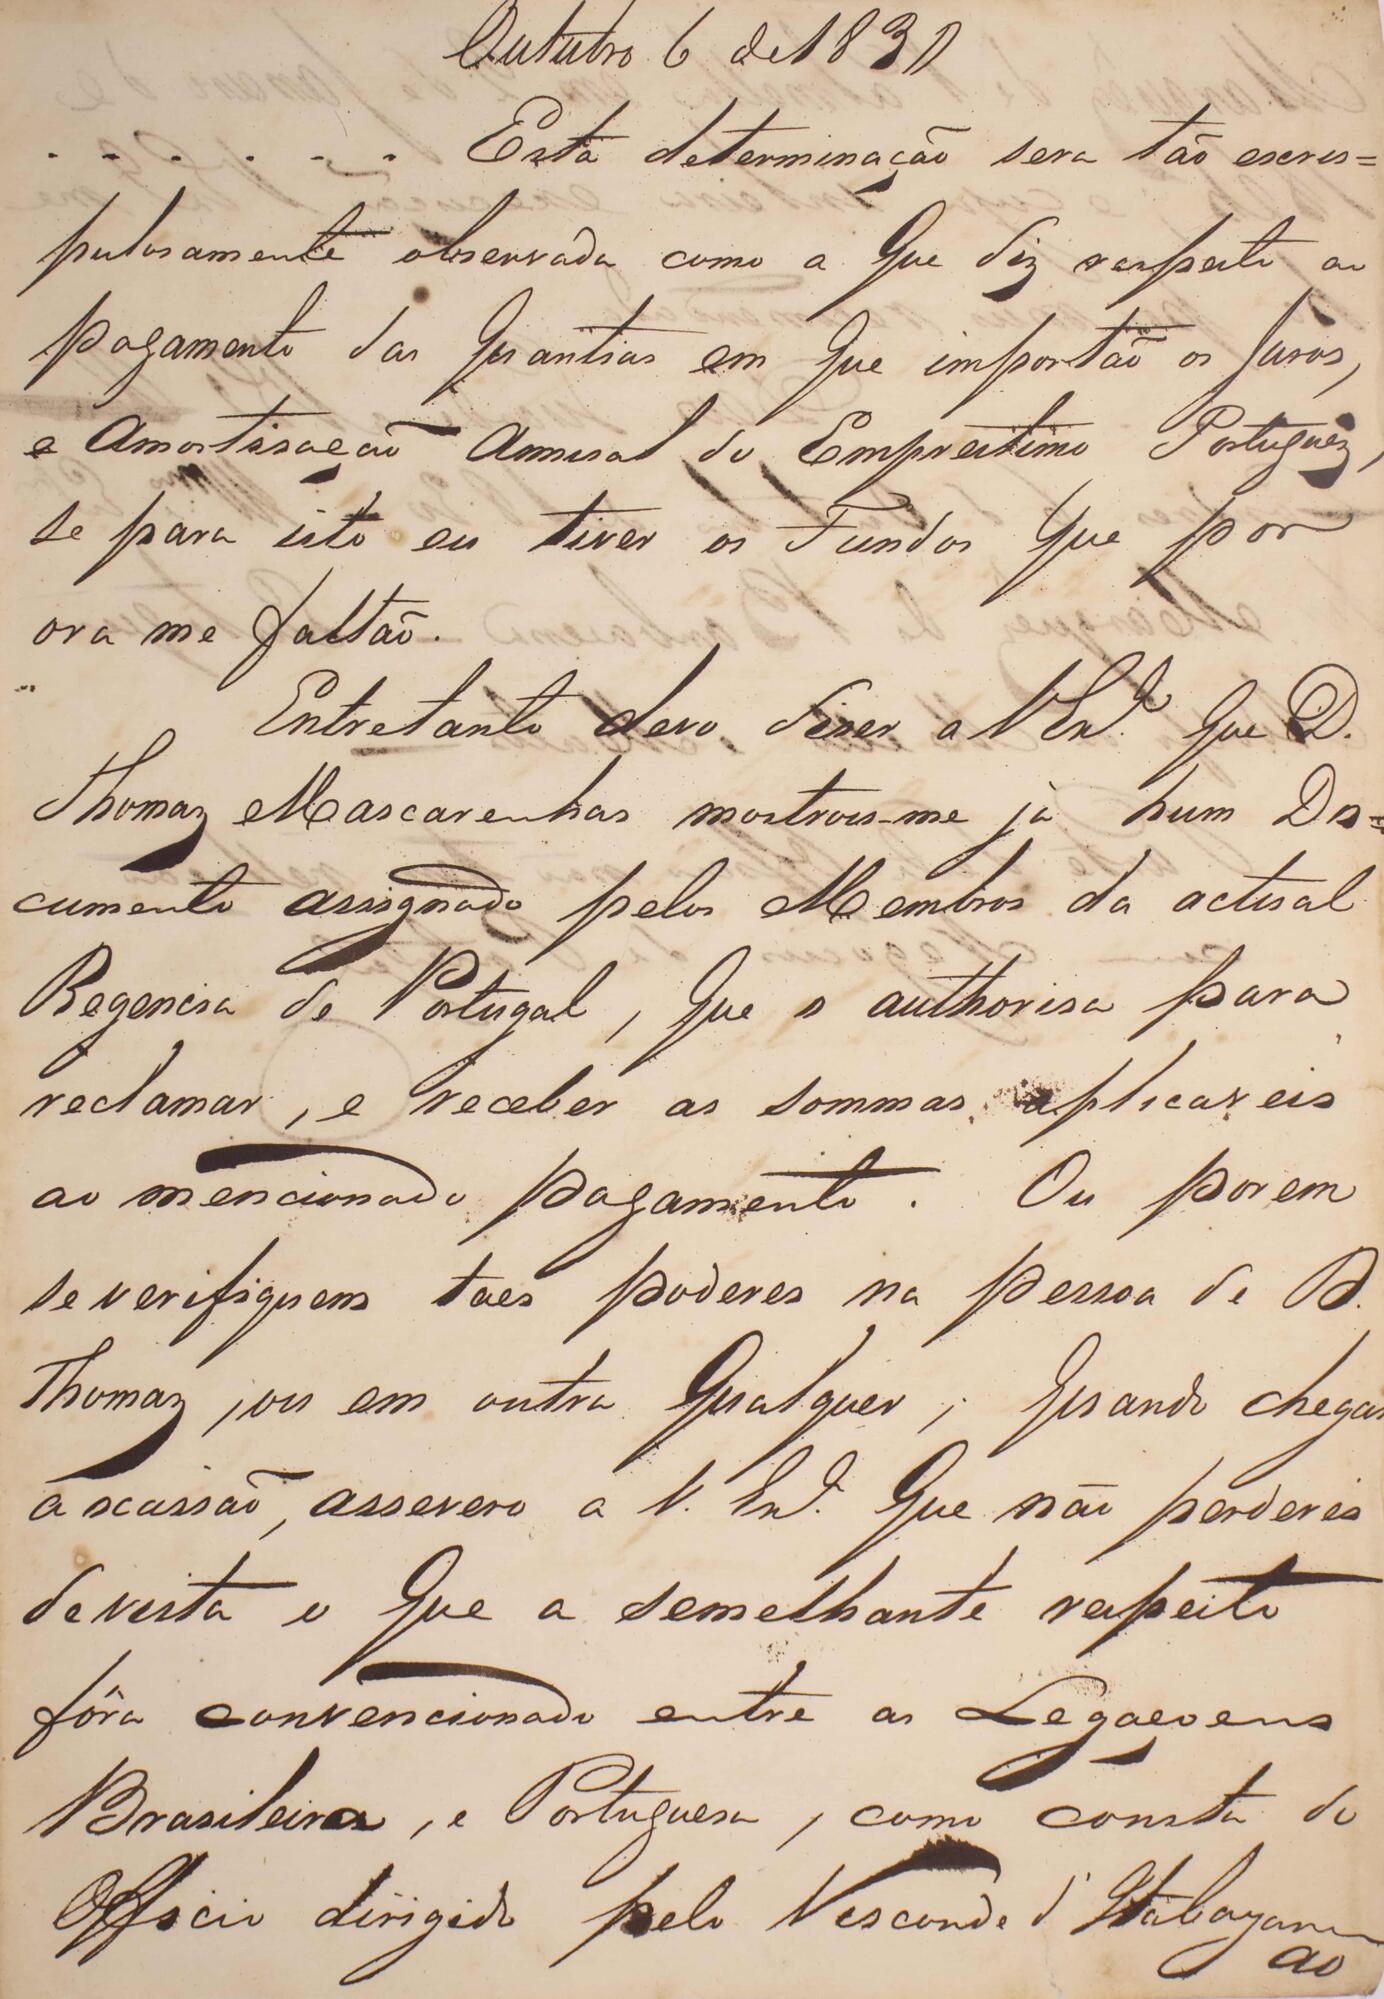 Outubro 6 de 1830
. . . . . . Esta determinação sera tão escru=
pulosamente observada como a que diz respeito ao
pagamento das quantias em que importão os Juros,
e Amortisação Annual do Emprestimo Portuguez,
se para isto eu tiver os Fundos que por
ora me faltão.
Entretanto devo dizer a V Ex.ª que D.
Thomaz Mascarenhas mostrou-me já hum Do=
cumento assignado pelos Membros da actual
Regencia de Portugal, que o authorisa para
reclamar, e receber as sommas aplicaveis
ao mencionado pagamento. Ou porem
se verifiquem taes poderes na pessoa de D.
Thomaz, ou em outra qualquer; quando chegar
a ocassião, assevero a V. Ex.ª que não perderei
de vista o que a semelhante respeito
fôra convencionado entre as Legaçoens
Brasileira, e Portuguesa, como consta do
Officio dirigido pelo Visconde d'Itabayana
ao